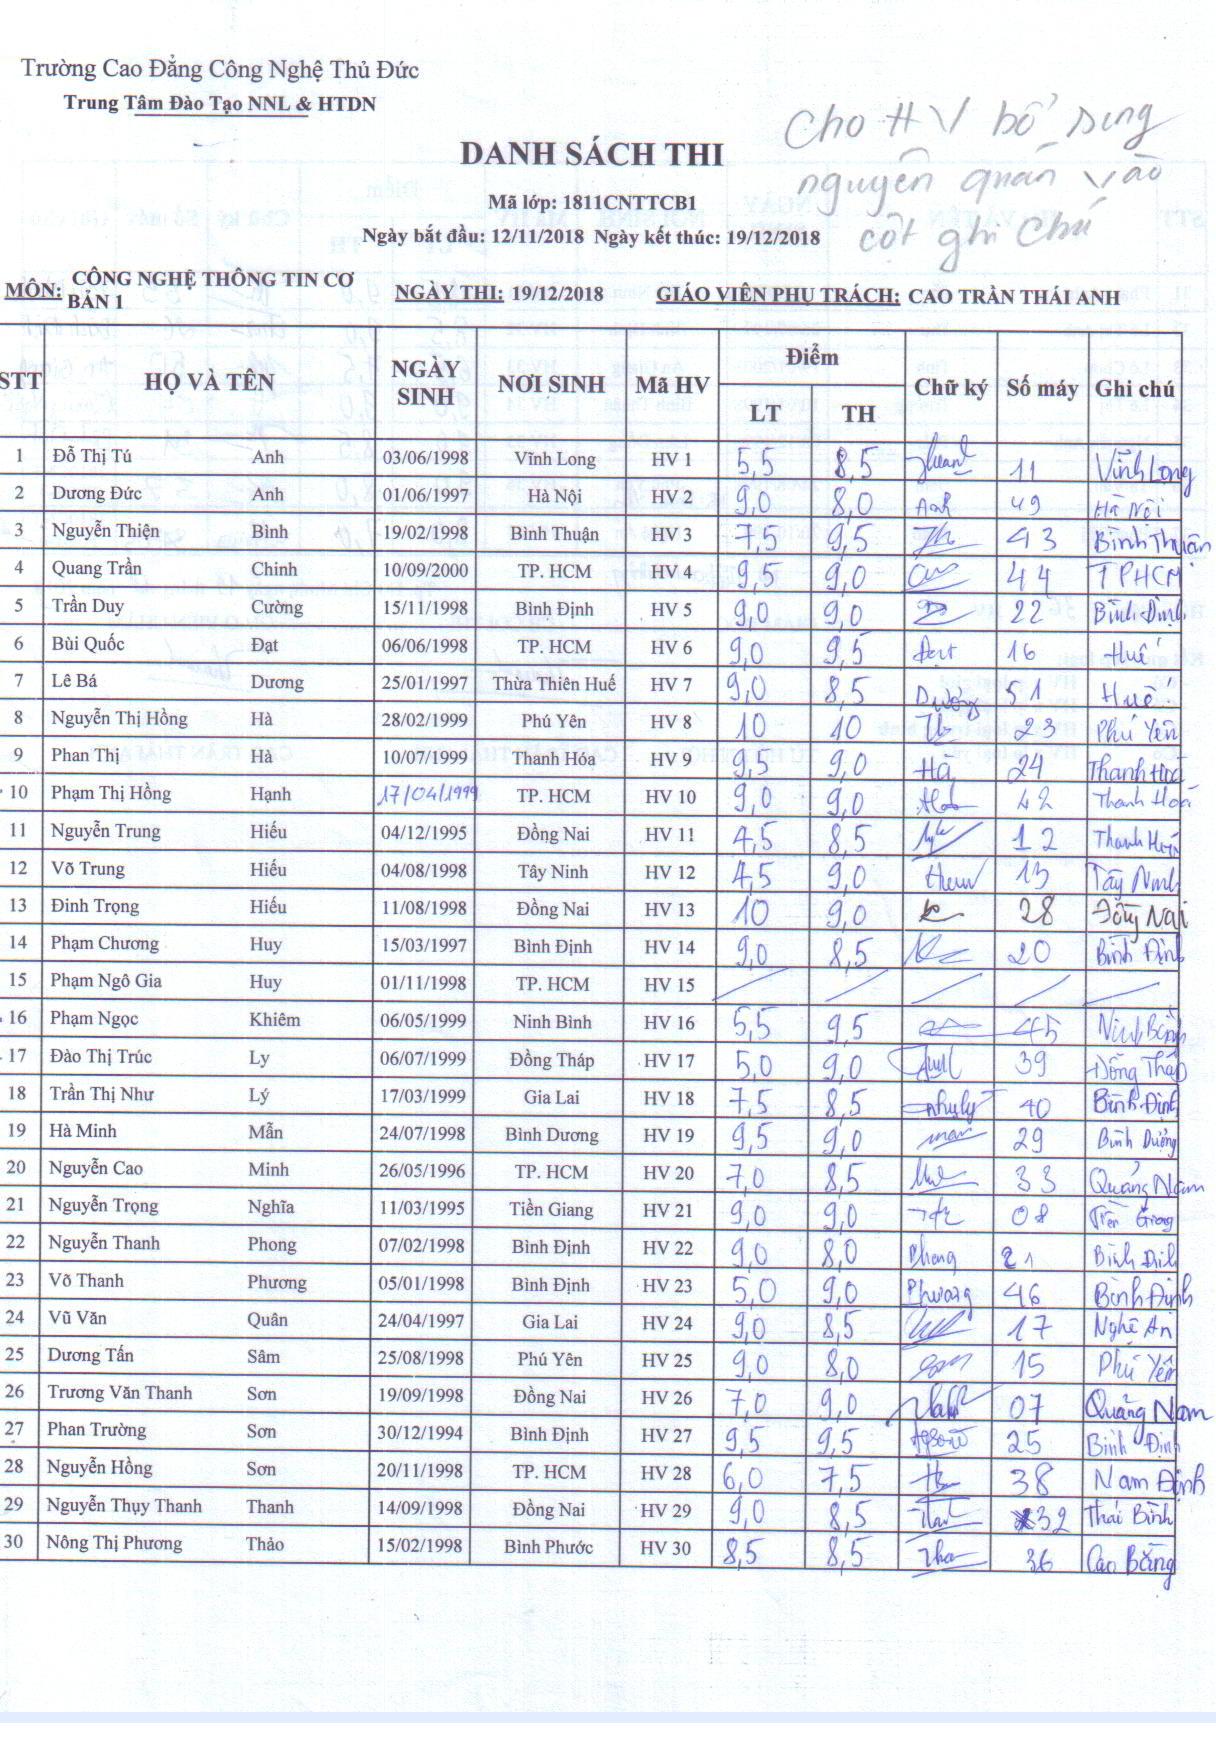 Trường Cao Đẳng Công Nghệ Thủ Đức
Trung Tâm Đào Tạo NNL & HTDN
Cho HV bổ sung
nguyên quán vào
cột ghi chú
DANH SÁCH THI
Mã lớp: 1811CNTTCB1
Ngày bắt đầu: 12/11/2018 Ngày kết thúc: 19/12/2018
MÔN: CÔNG NGHỆ THÔNG TIN CƠ BẢN 1 NGÀY THI: 19/12/2018 GIÁO VIÊN PHỤ TRÁCH: CAO TRẦN THÁI ANH
STT HỌ VÀ TÊN NGÀY SINH NƠI SINH Mã HV Điểm Chữ ký Số máy Ghi chú
LT TH
1 Đỗ Thị Tú Anh 03/06/1998 Vĩnh Long HV 1 5,5 8,5 11 Vĩnh Long
2 Dương Đức Anh 01/06/1997 Hà Nội HV 2 9,0 8,0 Anh 49 Hà Nội
3 Nguyễn Thiện Bình 19/02/1998 Bình Thuận HV 3 7,5 9,5 43 Bình Thuận
4 Quang Trần Chinh 10/09/2000 TP. HCM HV 4 9,5 9,0 44 TPHCM
5 Trần Duy Cường 15/11/1998 Bình Định HV 5 9,0 9,0 22 Bình Định
6 Bùi Quốc Đạt 06/06/1998 TP. HCM HV 6 9,0 9,5 Đạt 16 Huế
7 Lê Bá Dương 25/01/1997 Thừa Thiên Huế HV 7 9,0 8,5 Dương 51 Huế
8 Nguyễn Thị Hồng Hà 28/02/1999 Phú Yên HV 8 10 10 23 Phú Yên
9 Phan Thị Hà 10/07/1999 Thanh Hóa HV 9 9,5 9,0 Hà 24 Thanh Hoá
10 Phạm Thị Hồng Hạnh 17/04/1999 TP. HCM HV 10 9,0 9,0 42 Thanh Hoá
11 Nguyễn Trung Hiếu 04/12/1995 Đồng Nai HV 11 4,5 8,5 12 Thanh Hóa
12 Võ Trung Hiếu 04/08/1998 Tây Ninh HV 12 4,5 9,0 13 Tây Ninh
13 Đinh Trọng Hiếu 11/08/1998 Đồng Nai HV 13 10 9,0 28 Đồng Nai
14 Phạm Chương Huy 15/03/1997 Bình Định HV 14 9,0 8,5 20 Bình Định
15 Phạm Ngô Gia Huy 01/11/1998 TP. HCM HV 15
16 Phạm Ngọc Khiêm 06/05/1999 Ninh Bình HV 16 5,5 9,5 45 Ninh Bình
17 Đào Thị Trúc Ly 06/07/1999 Đồng Tháp HV 17 5,0 9,0 39 Đồng Tháp
18 Trần Thị Như Lý 17/03/1999 Gia Lai HV 18 7,5 8,5 40 Bình Định
19 Hà Minh Mẫn 24/07/1998 Bình Dương HV 19 9,5 9,0 29 Bình Dương
20 Nguyễn Cao Minh 26/05/1996 TP. HCM HV 20 7,0 8,5 33 Quảng Nam
21 Nguyễn Trọng Nghĩa 11/03/1995 Tiền Giang HV 21 9,0 9,0 08 Tiền Giang
22 Nguyễn Thanh Phong 07/02/1998 Bình Định HV 22 9,0 8,0 Phong 21 Bình Định
23 Võ Thanh Phương 05/01/1998 Bình Định HV 23 5,0 9,0 Phương 46 Bình Định
24 Vũ Văn Quân 24/04/1997 Gia Lai HV 24 9,0 8,5 17 Nghệ An
25 Dương Tấn Sâm 25/08/1998 Phú Yên HV 25 9,0 8,0 15 Phú Yên
26 Trương Văn Thanh Sơn 19/09/1998 Đồng Nai HV 26 7,0 9,0 07 Quảng Nam
27 Phan Trường Sơn 30/12/1994 Bình Định HV 27 9,5 9,5 25 Bình Định
28 Nguyễn Hồng Sơn 20/11/1998 TP. HCM HV 28 6,0 7,5 38 Nam Định
29 Nguyễn Thụy Thanh Thanh 14/09/1998 Đồng Nai HV 29 9,0 8,5 32 Thái Bình
30 Nông Thị Phương Thảo 15/02/1998 Bình Phước HV 30 8,5 8,5 36 Cao Bằng